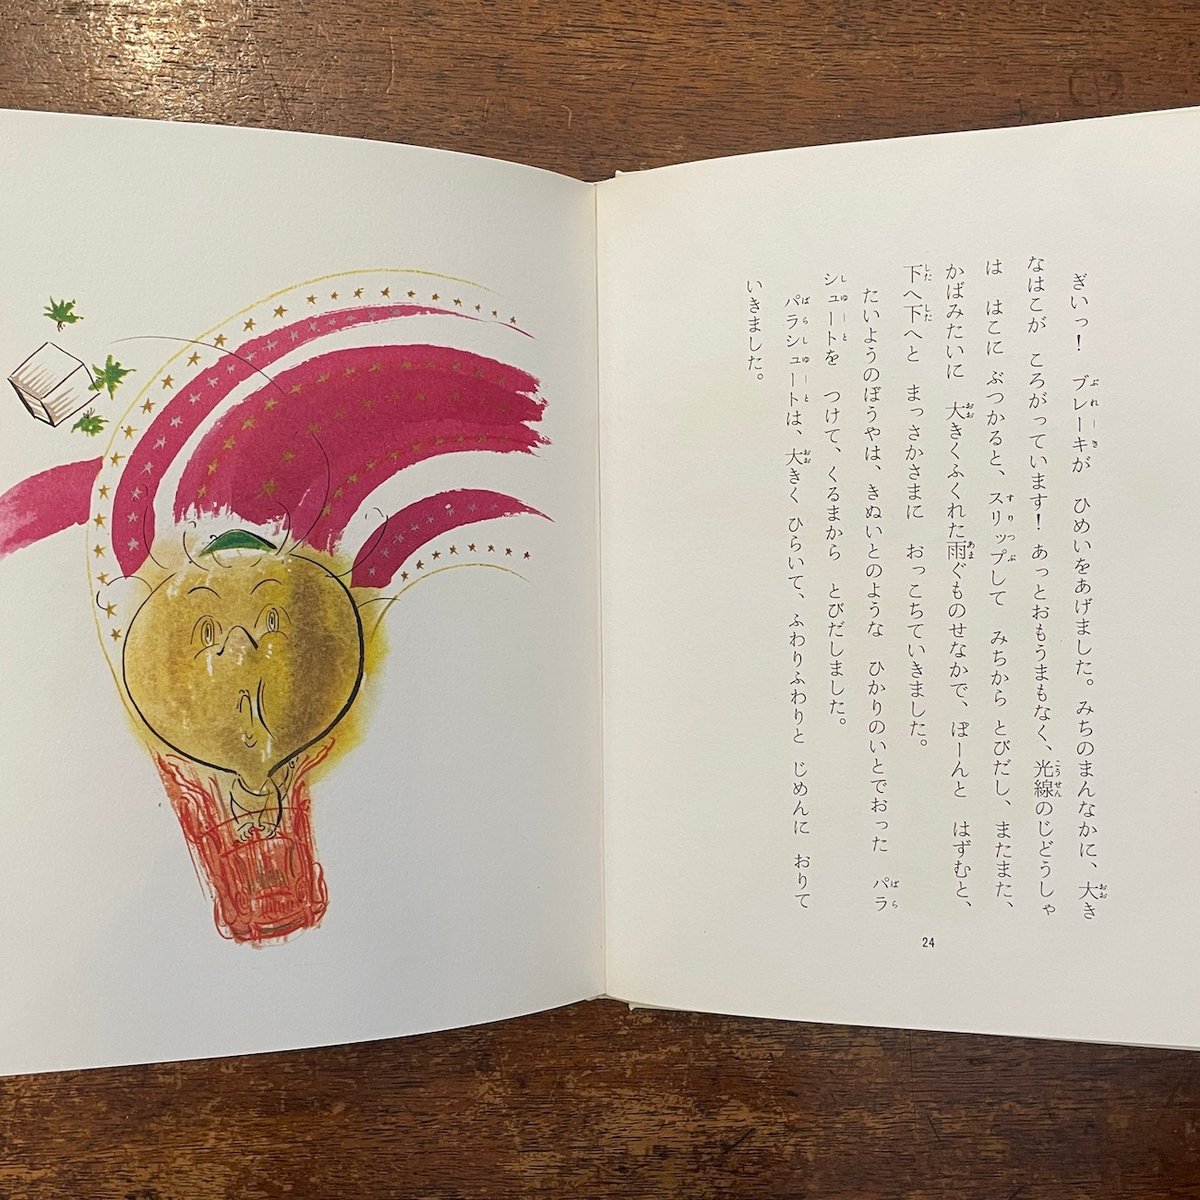 ぎいっ！　ブレーキが　ひめいをあげました。みちのまんなかに、大き
なはこが　ころがっています！　あっとおもうまもなく、光線のじどうしゃ
は　はこに　ぶつかると、スリップして　みちから　とびだし、またまた、
かばみたいに　大きくふくれた雨ぐものせなかで、ぽーんと　はずむと、
下へ下へと　まっさかさまに　おっこちていきました。
たいようのぼうやは、きぬいとのような　ひかりのいとでおった　パラ
シュートを　つけて、くるまから　とびだしました。
パラシュートは、大きく　ひらいて、ふわりふわりと　じめんに　おりて
いきました。
24